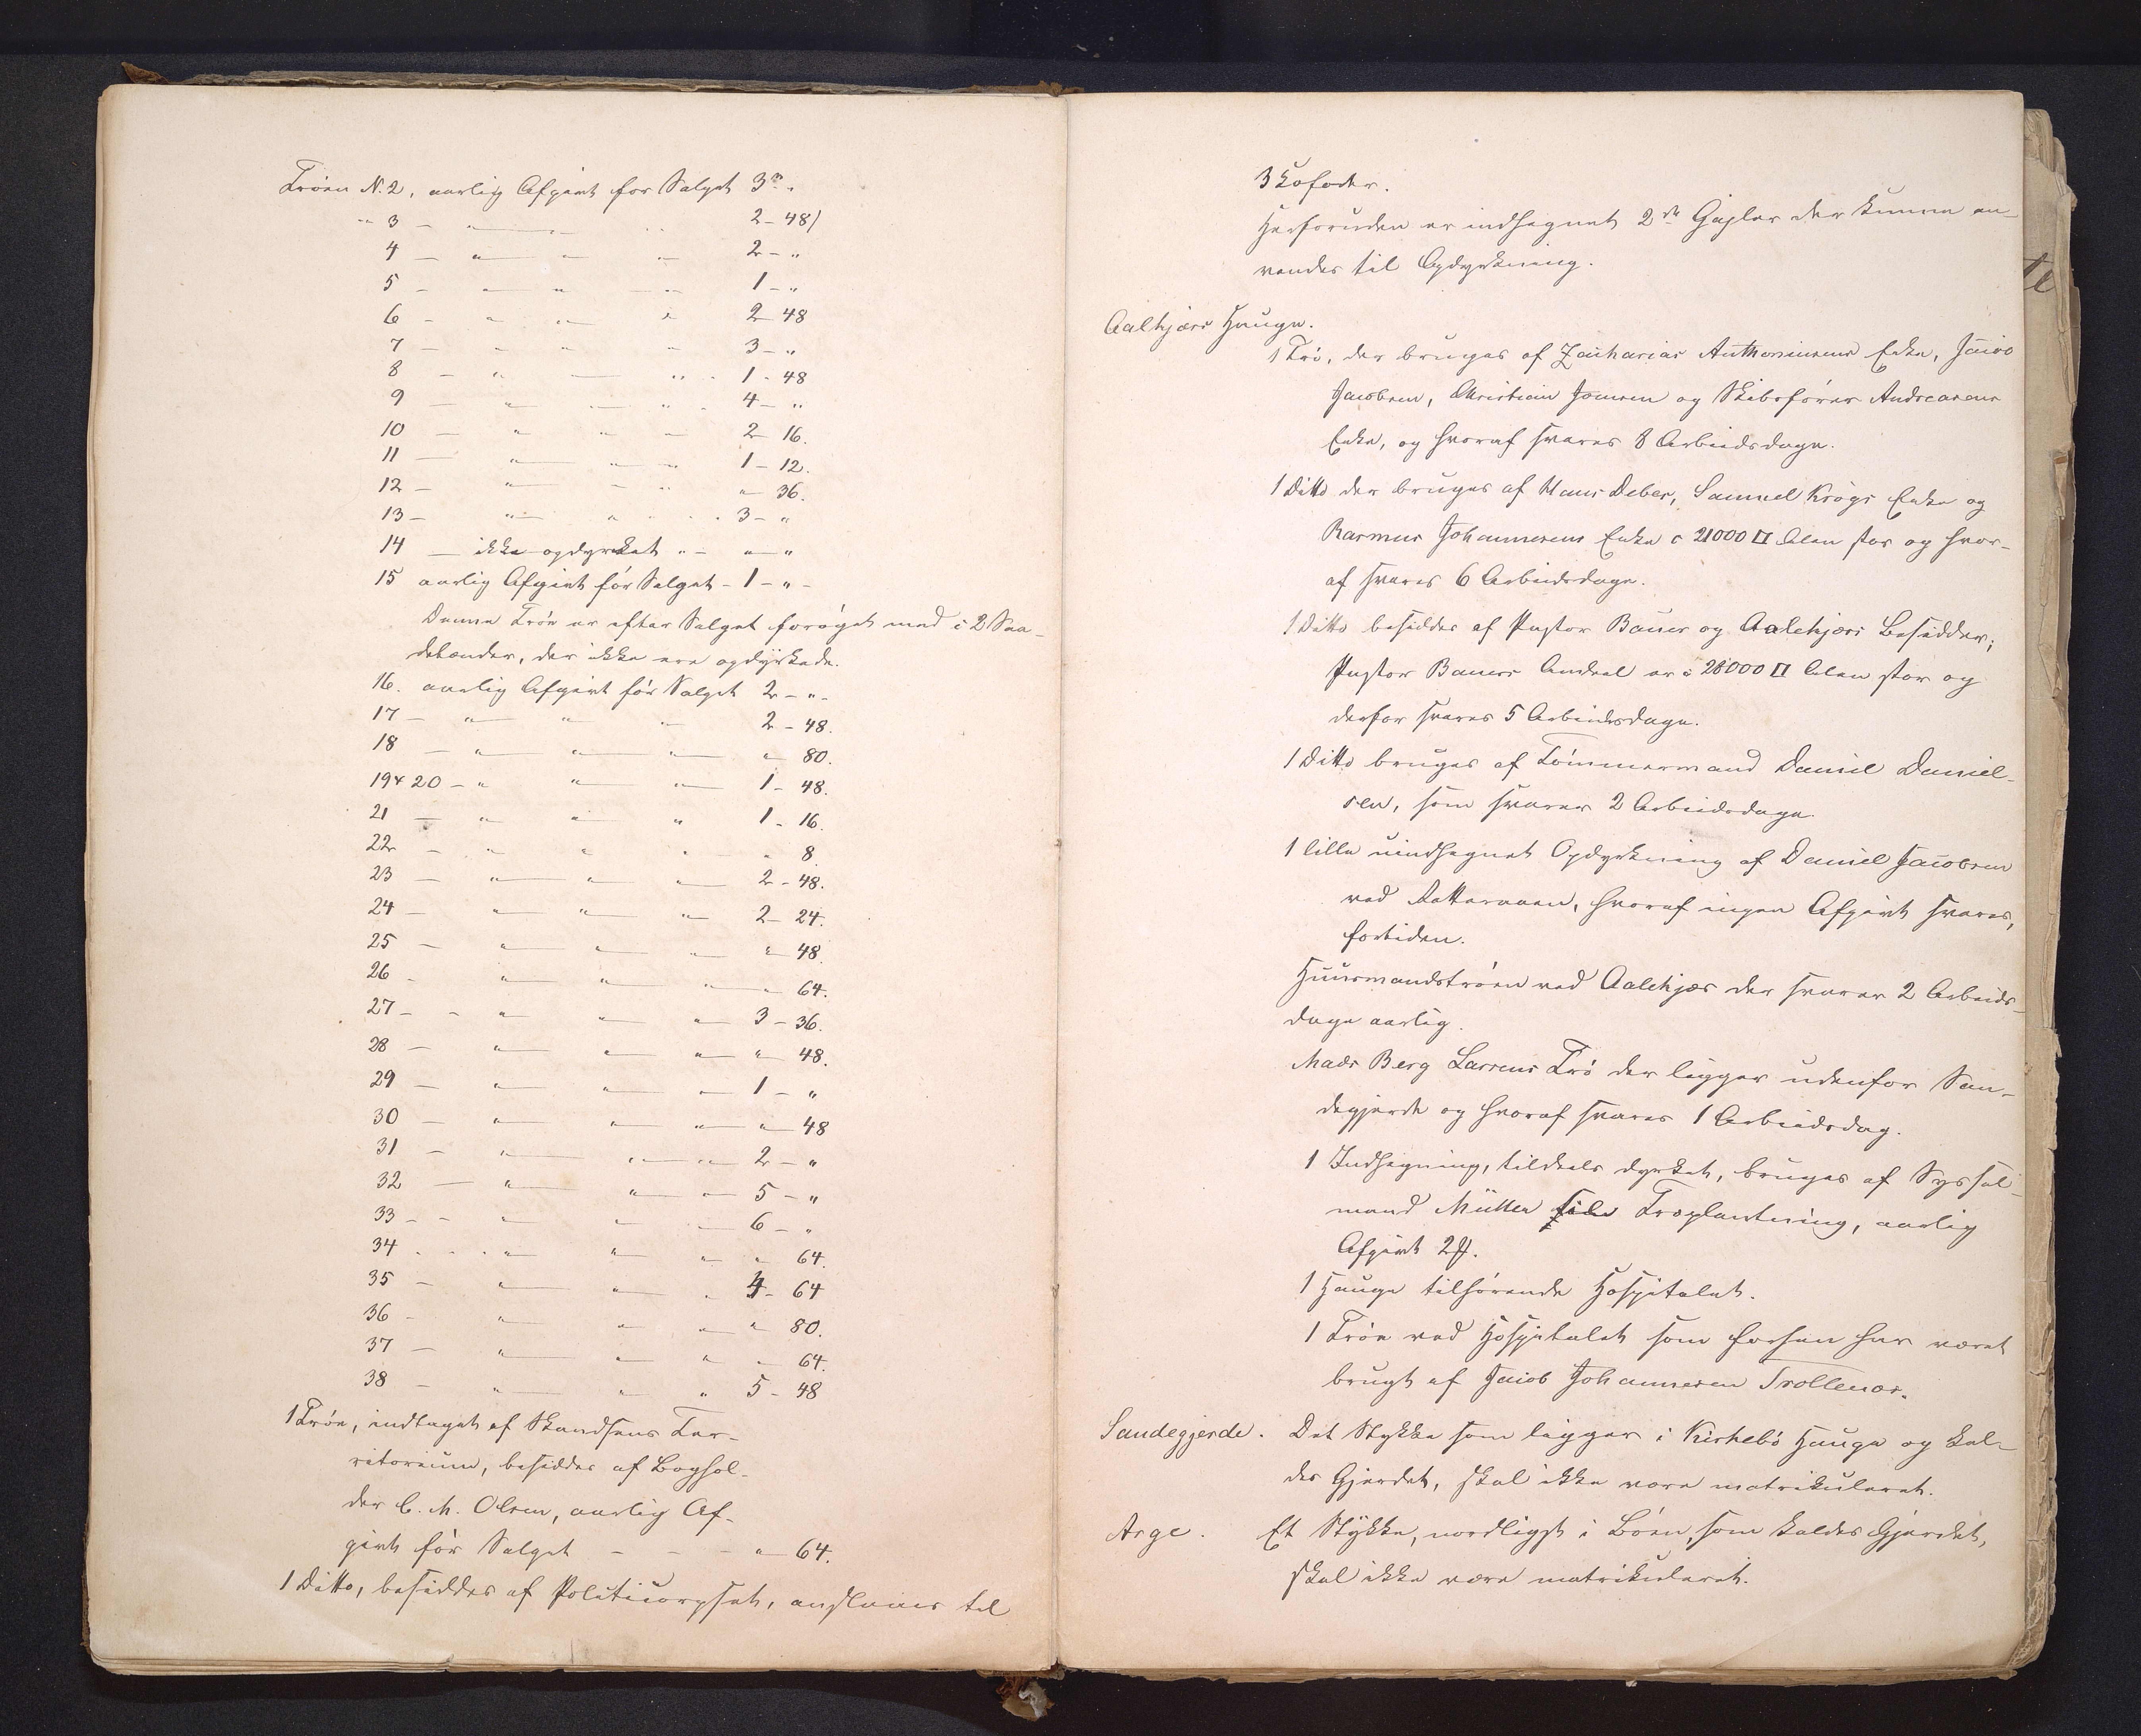 Tröen N. 2, aarlig Afgivt før Salget 3 rd "
" 3 — " — " 2 - 48)
4 — " — " — " 2 - "
5 — " — " — " 1 - "
6 — " — " — " 2 - 48
7 — " — " — " 3 - "
8 — " — " — " 1 - 48
9 — " — " — " 4 - "
10 — " — " — " 2 - 16.
11 — " — " — " 1 - 12.
12 — " — " — " " - 36.
13 — " — " — " 3 - "
14 — ikke opdyrket " - " - "
15 aarlig Afgivt før Salget - 1 - " -
Denne Tröe er efter Salget forøget med c 2 Saa-
delænder, der ikke ere opdyrkede.
16. aarlig Afgivt før Salget 2 - " -
17 — " — " — " 2 - 48.
18 — " — " — " " - 80.
19 & 20 — " — " — " 1 - 48.
21 — " — " — " 1 - 16.
22 — " — " — " " 8
23 — " — " — " 2 - 48.
24 — " — " — " 2 - 24.
25 — " — " — " " 48
26 — " — " — " " 64.
27 — " — " — " 3 - 36.
28 — " — " — " " 48.
29 — " — " — " 1 - "
30 — " — " — " " 48
31 — " — " — " 2 - "
32 — " — " — " 5 - "
33 — " — " — " 6 - "
34 — " — " — " " 64.
35 — " — " — " 4 - 64
36 — " — " — " " 80.
37 — " — " — " " 64.
38 — " — " — " 5 - 48
1 Tröe, indtaget af Skandsens Ter-
ritorium, besiddes af Boghol-
der C. M. Olsen, aarlig Af-
givt før Salget — — — " 64.
1 Ditto, besiddes af Politicorpset, anslaaes til
3 Kofoder.
Herforuden er indhegnet 2de Gejler der kunne an-
vendes til Opdyrkning.
Aalekjærs Hauge.
1 Trö, der bruges af Zacharias Anthoniusens Enke, Jacob
Jacobsen, Christian Joensen og Skibsfører Andreasens
Enke, og hvoraf svares 8 Arbeidsdage.
1 Ditto der bruges af Hans Debes, Samuel Krogs Enke og
Rasmus Johannesens Enke c 21000 □ Alen stor og hvor-
af svares 6 Arbeidsdage.
1 Ditto besiddes af Pastor Bauer og Aalekjærs Besidder;
Pastor Bauers Andeel er c 28000 □ Alen stor og
derfor svares 5 Arbeidsdage.
1 Ditto bruges af Tømmermand Daniel Daniel-
sen, som svarer 2 Arbeidsdage.
1 lille uindhegnet Opdyrkning af Daniel Jacobsen
ved hvoraf ingen Afgivt svares,
fortiden.
Huusmandströen ved Aalekjær der svarer 2 Arbeids-
dage aarlig.
Mads Berg Larsens Trö der ligger udenfor San-
degjerde og hvoraf svares 1 Arbeidsdag.
1 Indhegning, tildeels dyrket, bruges af Syssel-
mand Müller til Træplantning, aarlig
Afgivt 2 ₰.
1 Hauge tilhørende Hospitalet.
1 Tröe ved Hospitalet som forhen har været
brugt af Jacob Johannesen Trollenæs.
Sandegjerde. Det Stykke som ligger i Kirkebö Hauge og kal-
des Gjerdet, skal ikke være matrikuleret.
Arge. Et Stykke, nordligst i Böen, som kaldes Gjerdet,
skal ikke være matrikuleret.